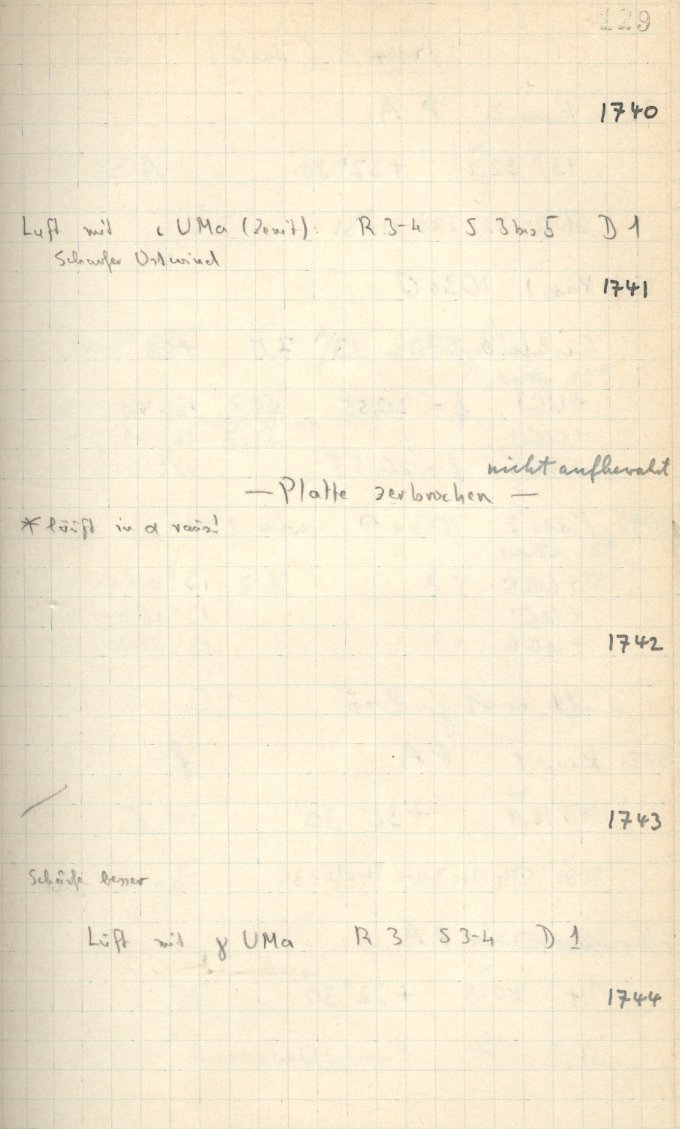 129
1740
Luft mit ι UMa (Zenit): R 3-4 S 3 bis 5 D 1
Scharfer Ostwind
1741
nicht aufbewahrt
— Platte zerbrochen —
* läuft in α raus!
1742
1743
Schärfe besser
Luft mit γ UMa R 3 S 3-4 D 1
1744